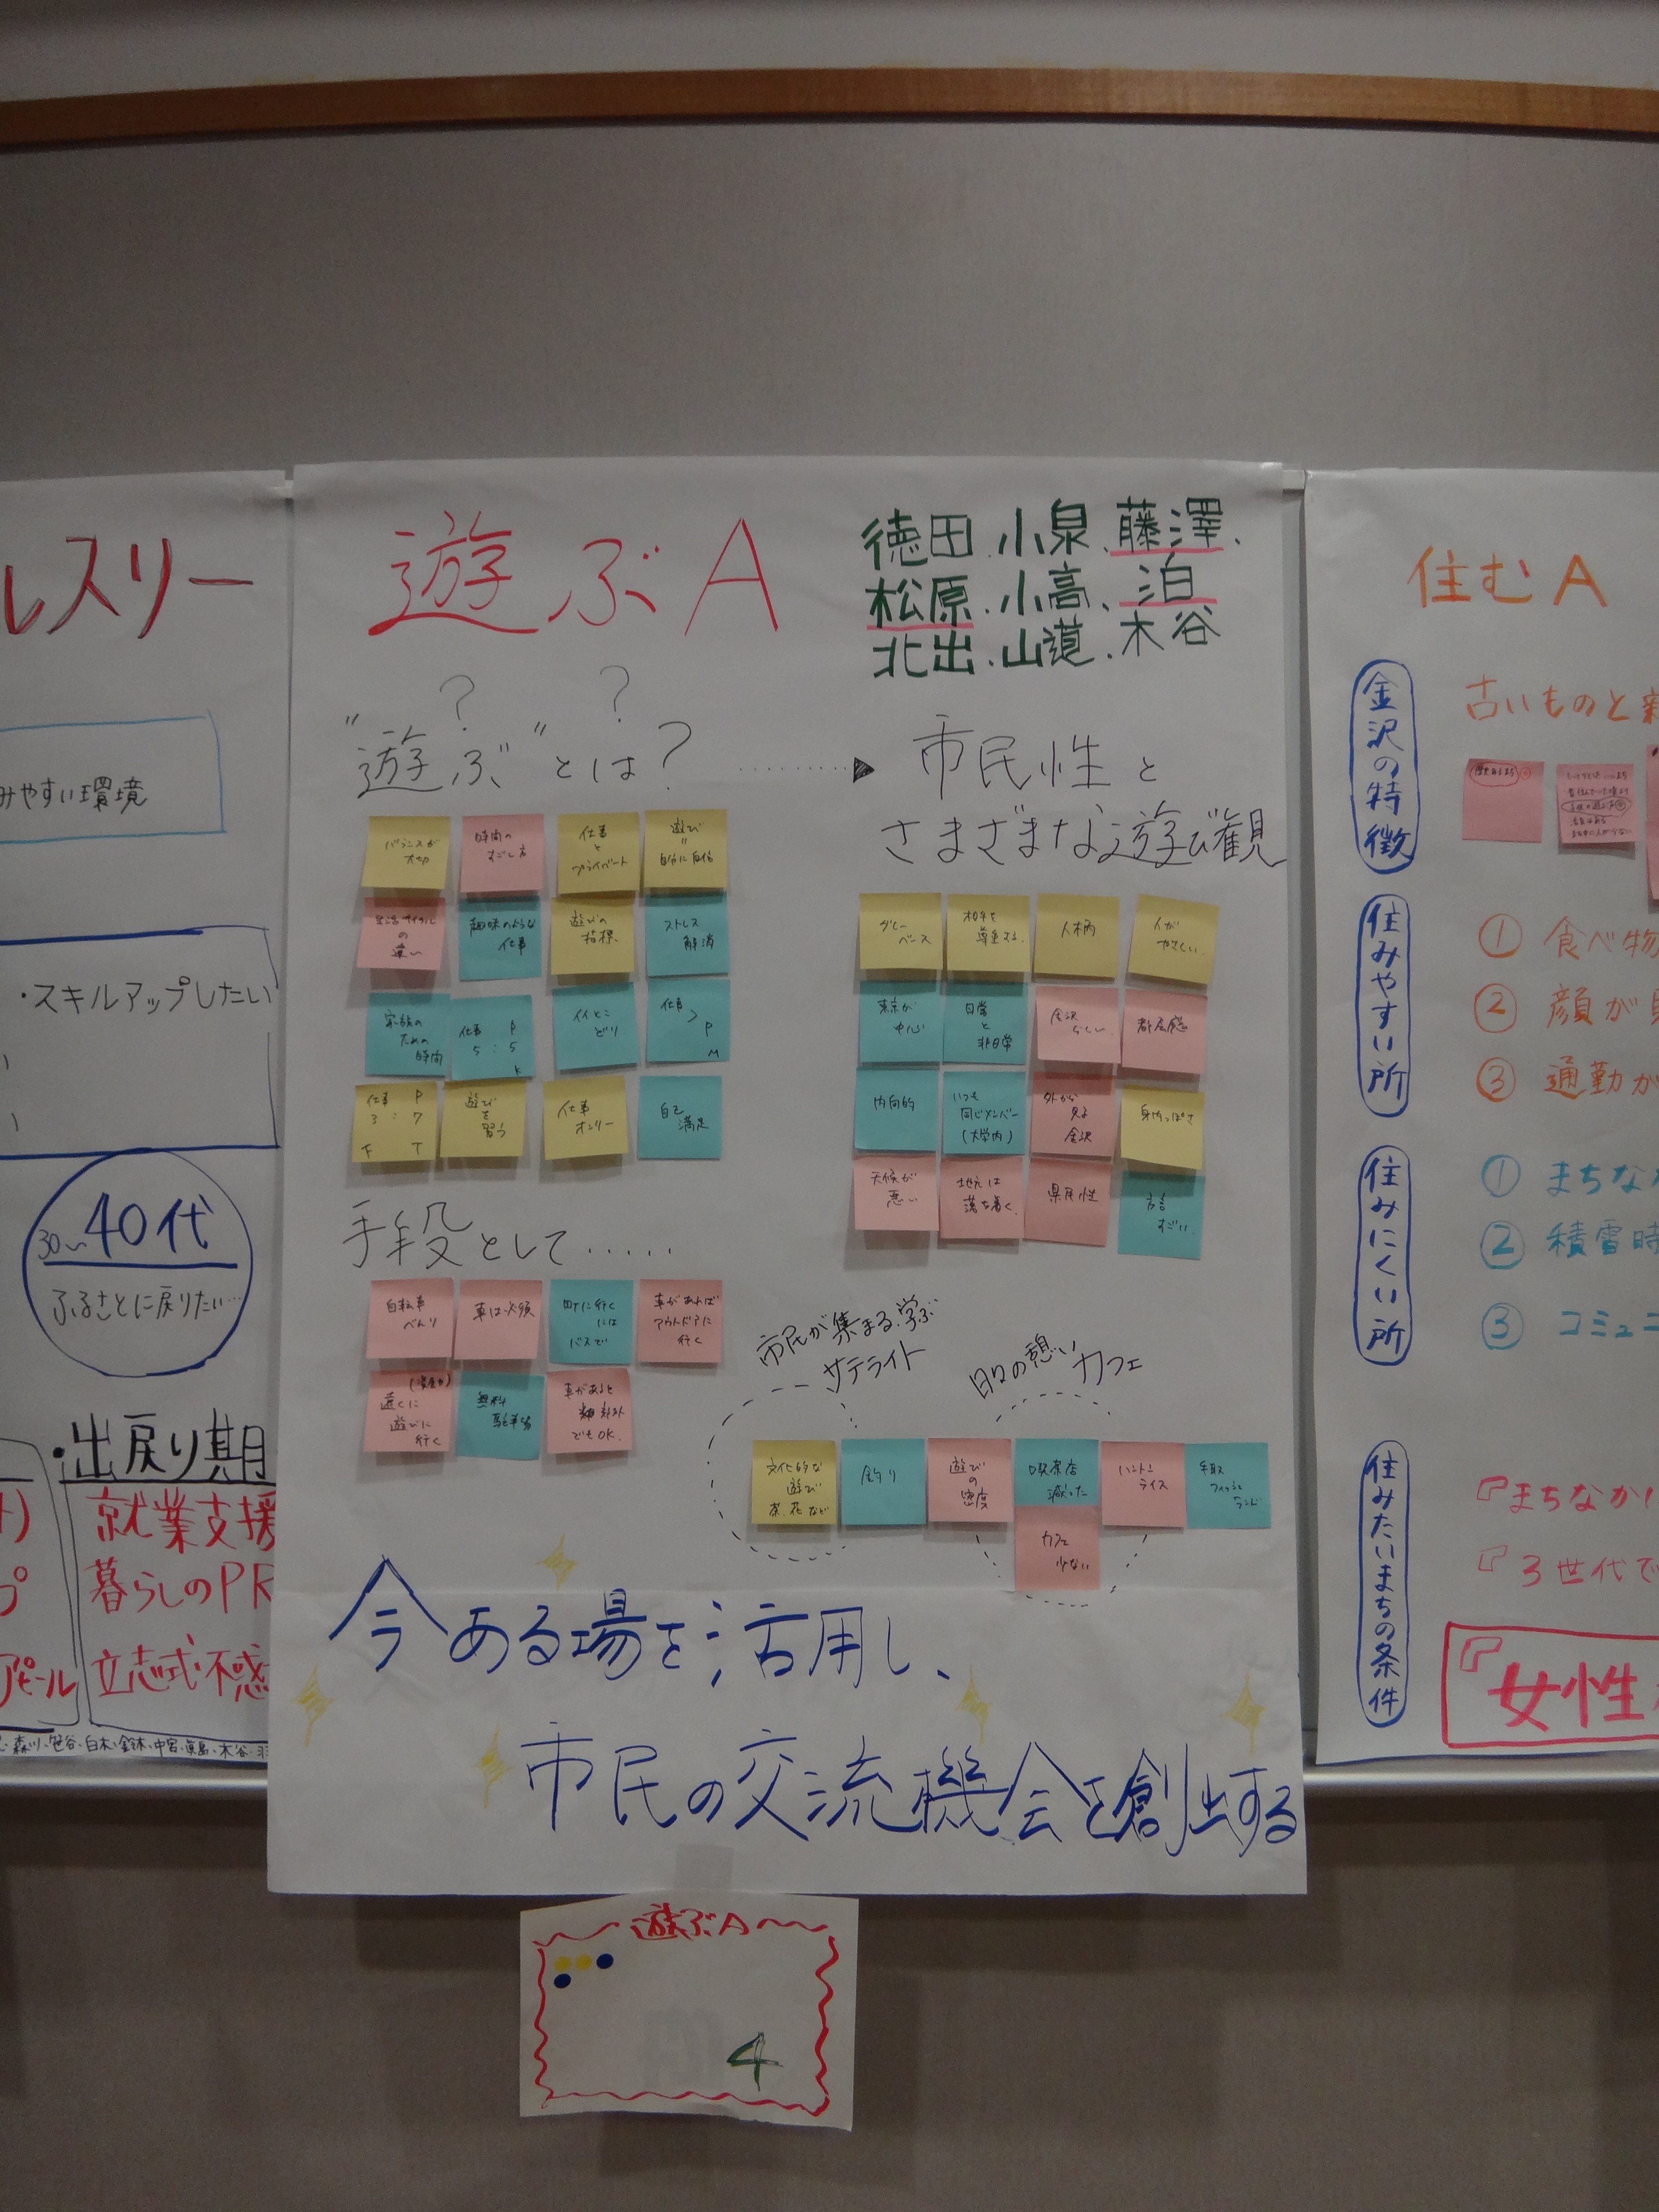 レスリー
みやすい環境
・スキルアップしたい
30〜40代
ふるさとに戻りたい…
・出戻り期
就業支援
暮らしのPR
アピール
立志式・不惑
森川・笹谷・白木・鈴木・中宮・眞島・木谷・
遊ぶA
徳田、小泉、藤澤、
松原、小高、泊
北出、山道、木谷
? ?
"遊ぶ"とは?
バランスが
大切
時間の
すごし方
仕事
と
プライベート
遊び
=
自分に自信
生活サイクル
の
違い
趣味のような
仕事
遊びの
指標
ストレス
解消
家族の
ための
時間
仕事 P
5:5
K
イイとこ
どり
仕事
>
P
M
仕事 P
3:7
T
遊び
を
習う
仕事
オンリー
自己
満足
手段として……
自転車
べんり
車は必須
町に行く
には
バスで
車があれば
アウトドアに
行く
遊びに
行く
無料
駐車場
車があると
でもOK.
市民性と
さまざまな遊び観
グレー
ベース
相手を
尊重する
人柄
人が
やさしい
東京が
中心
日常
と
非日常
金沢
らしい
都広感
内向的
いつも
同じメンバー
(大学内)
外から
見る
金沢
身内っぽさ
天候が
悪い
地元は
落ち着く
県民性
方言
すごい
市民が集まる、学ぶ
サテライト
日々の憩い
カフェ
文化的な
遊び
茶、花など
釣り
遊び
の
密度
喫茶店
減った
ハントン
ライス
手取
フィッシュ
ランド
カフェ
少ない
今ある場を活用し、
市民の交流機会を創出する
遊ぶA
4
住むA
金沢の特徴
古いものと新
歴史あるまち
住みやすい所
① 食べ物
② 顔が見
③ 通勤が
住みにくい所
① まちなか
② 積雪時
③ コミュニ
住みたいまちの条件
『まちなかに
『3世代で
『女性